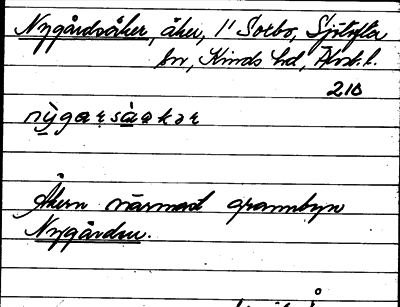 Nygårdsåker, åker, 1" Sotbo, Sjötofta
sn, Kinds hd, Älvsb. l.
210
nỳgaʀsàakəʀ
Åkern närmast grannbyn
Nygården.